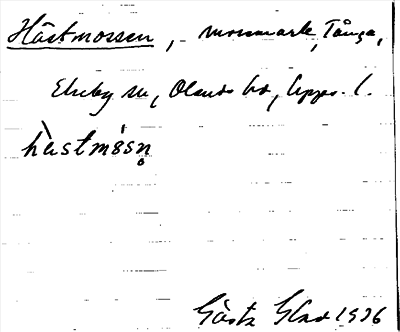 Hästmossen, mossmark, Tånga,
Ekeby sn, Olands hd, Upps. l.
hæstmòsn̥
Gösta Glad 1936